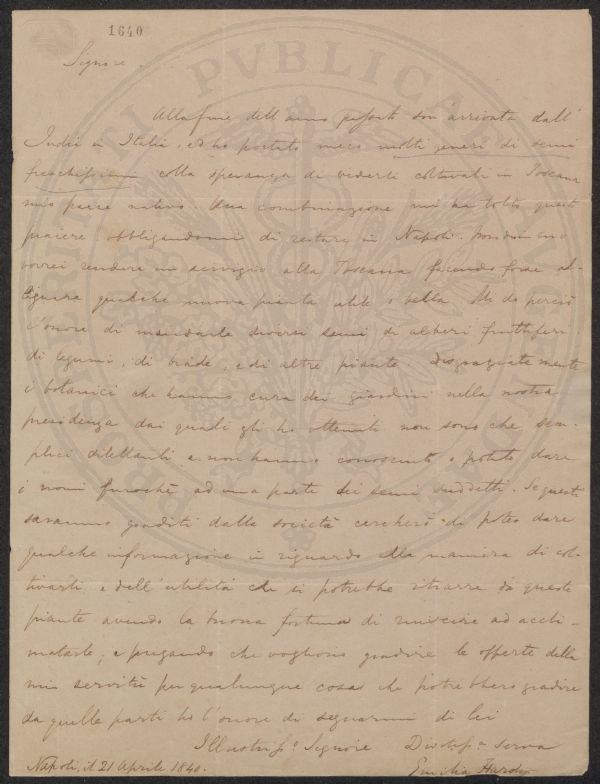 1640
Signore.
Alla fine dell'anno passato son'arrivata dall'
Indie in Italia, ed ho portato meco molti generi di semi
freschissimi colla speranza di vederli coltivati in Toscana
mio paese nativo. Una combinazione mi ha tolto questo
piacere obbligandomi di restare in Napoli.
vorrei rendere un servizio alla Toscana facendo forse al-
lignare qualche nuova pianta utile o bella. Mi do perciò
l'onore di mandarle diversi semi di alberi fruttiferi,
di legumi, di biade, e di altre piante. Disgraziatamente
i botanici che hanno cura dei giardini nella nostra
presidenza dai quali gli ho ottenuti non sono che sem-
plici dilettanti e non hanno conosciuto o potuto dare
i nomi fuorchè ad una parte dei semi suddetti. Se questi
saranno graditi dalla società cercherò di poter dare
qualche informazione in riguardo alla maniera di col-
tivarli e dell'utilità che si potrebbe ritrarre da queste
piante avendo la buona fortuna di riuscire ad accli-
matarle, e pregando che vogliono gradire le offerte della
mia servitù per qualunque cosa che potrebbero gradire
da quelle parti ho l'onore di segnarmi di lei
Illustriss.o Signore Divotiss.a serva
Napoli, il 21 Aprile 1840. Emilia Hardy
PVBLICAE